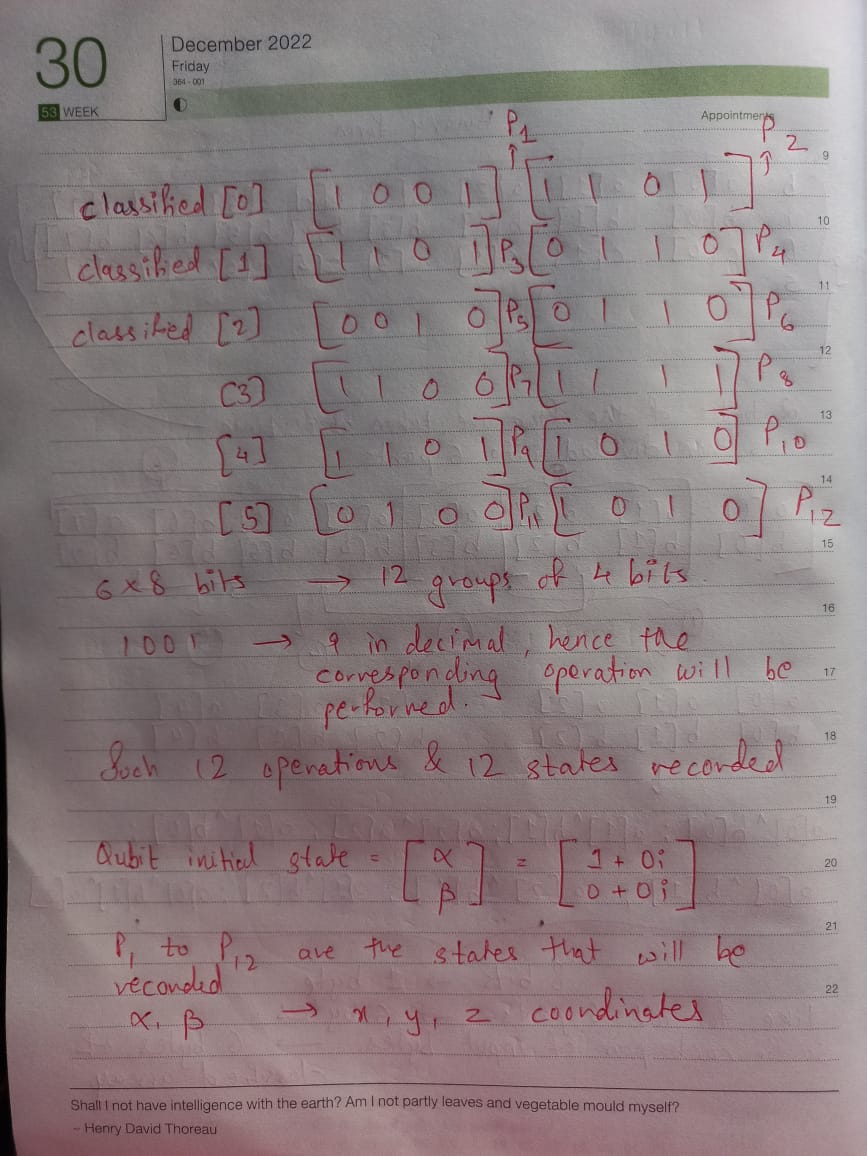 30
December 2022
Friday
364 - 001
53 WEEK
Appointments
P1 P2
classified [0] [1 0 0 1] [1 1 0 1]
classified [1] [1 1 0 1] P3 [0 1 1 0] P4
classified [2] [0 0 1 0] P5 [0 1 1 0] P6
[3] [1 1 0 0] P7 [1 1 1 1] P8
[4] [1 1 0 1] P9 [1 0 1 0] P10
[5] [0 1 0 0] P11 [1 0 1 0] P12
6 x 8 bits → 12 groups of 4 bits.
1001 → 9 in decimal, hence the
corresponding operation will be
performed.
Such 12 operations & 12 states recorded
Qubit initial state = [α β] = [1 + 0i 0 + 0i]
P1 to P12 are the states that will be
recorded
α, β → x, y, z coordinates
9
10
11
12
13
14
15
16
17
18
19
20
21
22
Shall I not have intelligence with the earth? Am I not partly leaves and vegetable mould myself?
~ Henry David Thoreau